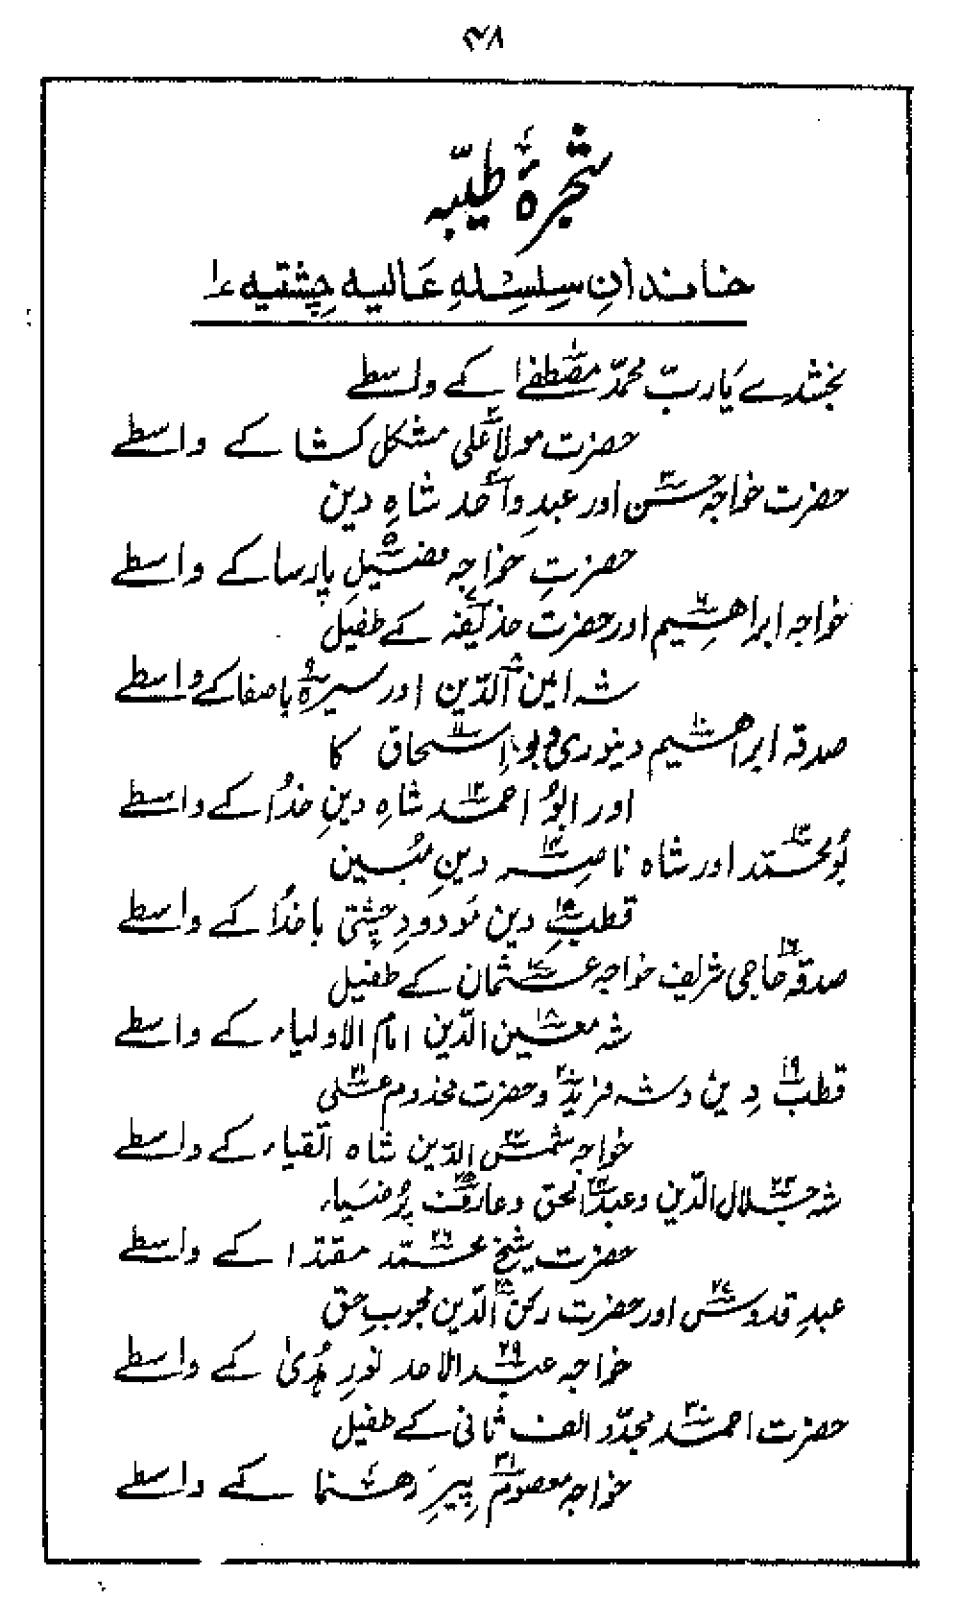 ۴۸
شجرۂ طیّبہ
خاندانِ سِلسِلہِ عَالیہ چِشتیہ ؑ۱
بخشدے یَارب محمدؐ مصطفےٰ ۱ کے واسطے
حضرت مولا علی ۲ مشکل کشا کے واسطے
حضرت خواجہ حسن ۳ اور عبدِ واحد ۴ شاہِ دین
حضرتِ خواجہ فضیلِ ۵ پارسا کے واسطے
خواجہ ابراھیم ۶ اور حضرت حذیفہ ۷ کے طفیل
شہ امین الدّین ۸ اور سیرہ ۹ باصفا کے واسطے
صدقہ ابراھیم ۱۰ دینوری و بو اسحاق ۱۱ کا
اور ابو احمد ۱۲ شاہِ دینِ خدا کے واسطے
بُو محمّد ۱۳ اور شاہ ناصر ۱۴ دینِ مُبین
قطبِ ۱۵ دین مَودودِ چِشتی باخدا کے واسطے
صدقہ حاجی ۱۶ شریف خواجہ عثمان ۱۷ کے طفیل
شہ معین ۱۸ الدّین امام الاولیاء کے واسطے
قطب ۱۹ دِین و شہ فرید ۲۰ و حضرت مخدوم علی ۲۱
خواجہ شمس ۲۲ الدّین شاہ اتقیاء کے واسطے
شہ جلال ۲۳ الدّین و عبدالحق ۲۴ و عارف ۲۵ پُر ضیَاء
حضرت شیخ محمّد ۲۶ مقتدا کے واسطے
عبدِ قدوس ۲۷ اور حضرت رکن ۲۸ الدّین محبوبِ حق
خواجہ عبد ۲۹ الاحد نورِ ہُدیٰ کے واسطے
حضرت احمد ۳۰ مجدّد الف ثانی کے طفیل
خواجہ معصوم ۳۱ پِیرِ رَھنما کے واسطے